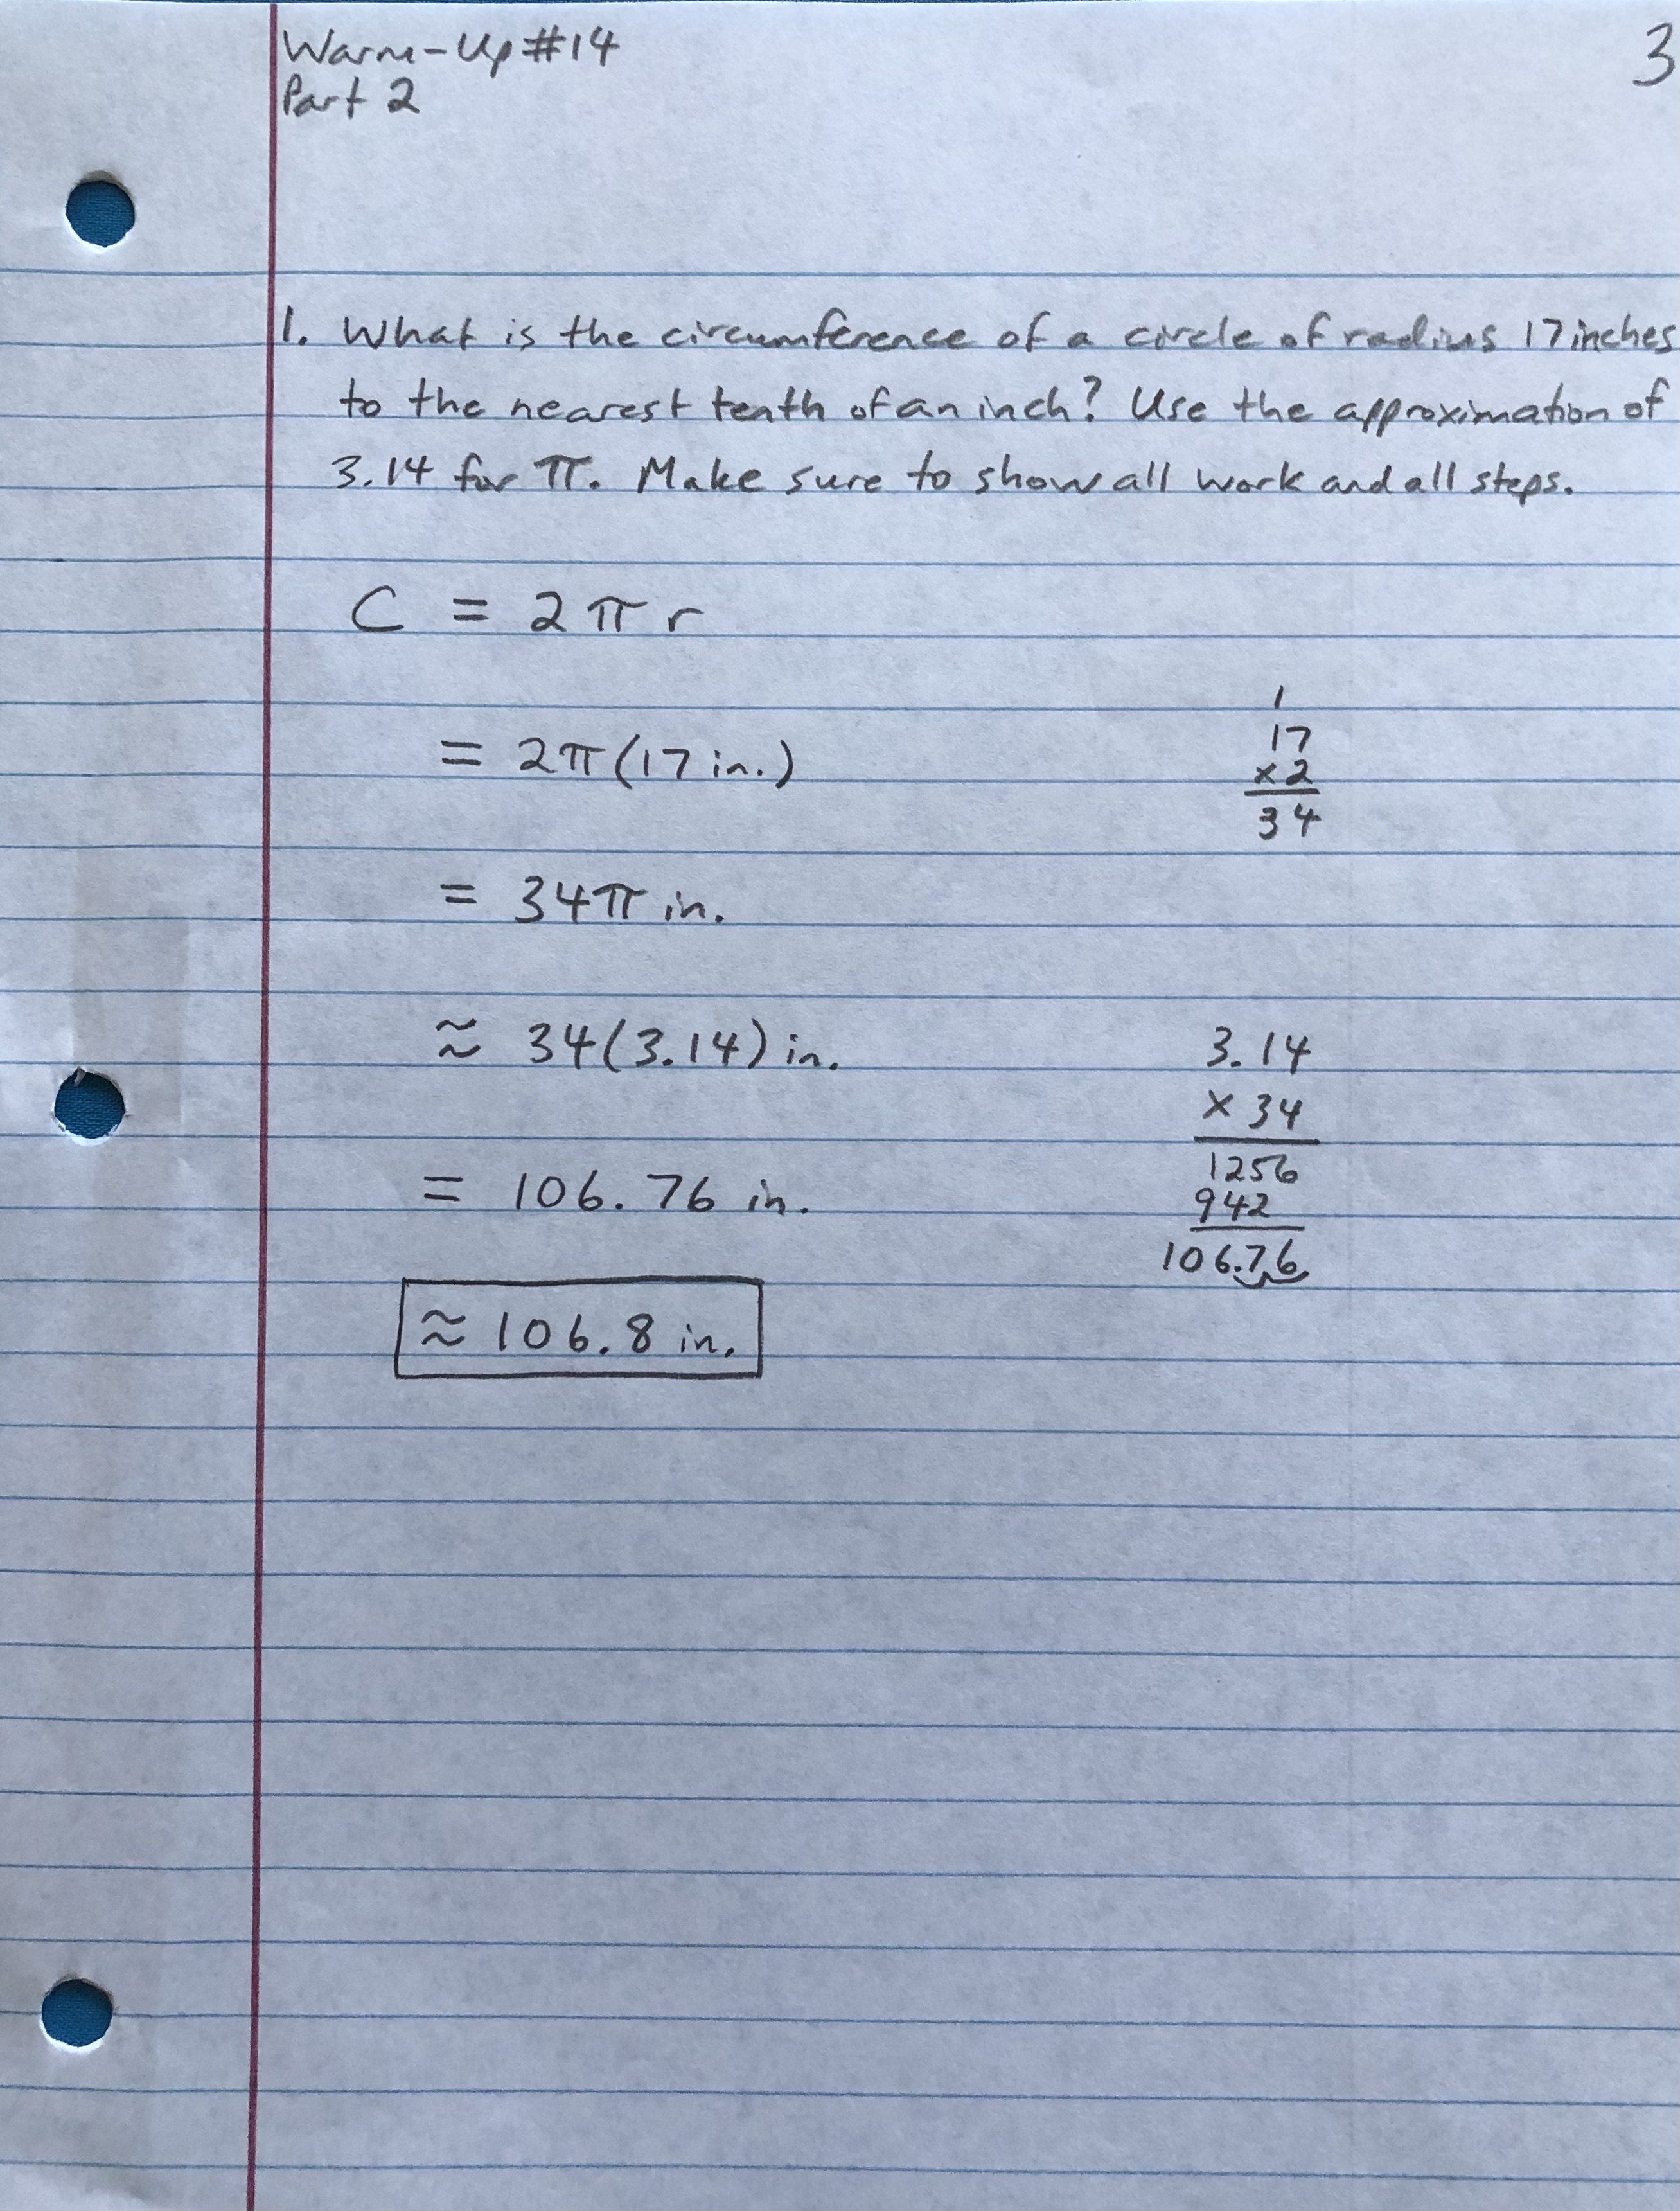 Warm-Up #14
3
Part 2
1. What is the circumference of a circle of radius 17 inches
to the nearest tenth of an inch? Use the approximation of
3.14 for π. Make sure to show all work and all steps.
C = 2πr
= 2π(17 in.)
1
17
×2
34
= 34π in.
≈ 34(3.14) in.
3.14
× 34
1256
942
106.76
= 106.76 in.
≈ 106.8 in.